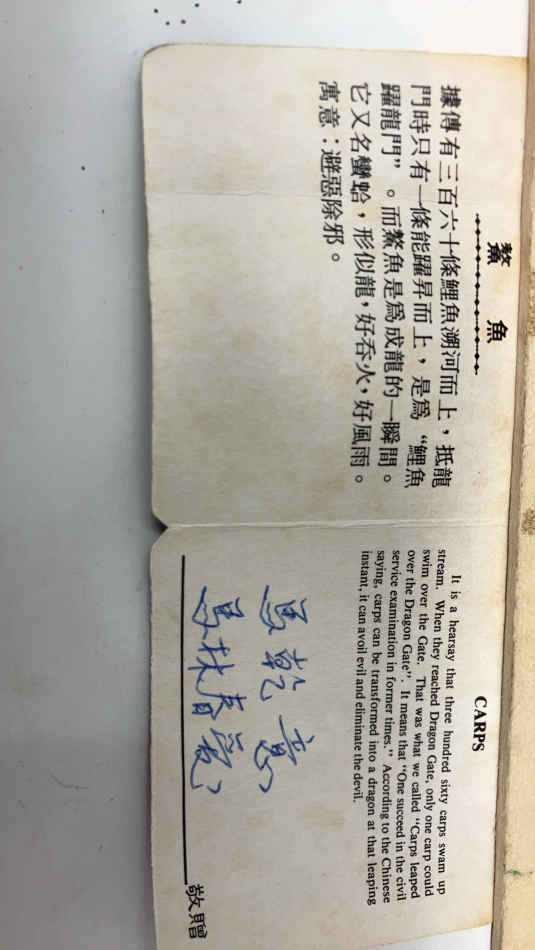 鰲魚
據傳有三百六十條鯉魚溯河而上，抵龍
門時只有一條能躍昇而上，是為“鯉魚
躍龍門”。而鰲魚是為成龍的一瞬間。
它又名蠻蛤，形似龍，好吞火，好風雨。
寓意：避惡除邪。
CARPS
It is a hearsay that three hundred sixty carps swam up
stream. When they reached Dragon Gate, only one carp could
swim over the Gate. That was what we called “Carps leaped
over the Dragon Gate”. It means that “One succeed in the civil
service examination in former times.” According to the Chinese
saying, carps can be transformed into a dragon at that leaping
instant, it can avoil evil and eliminate the devil.
馬乾意
馬林春
敬贈